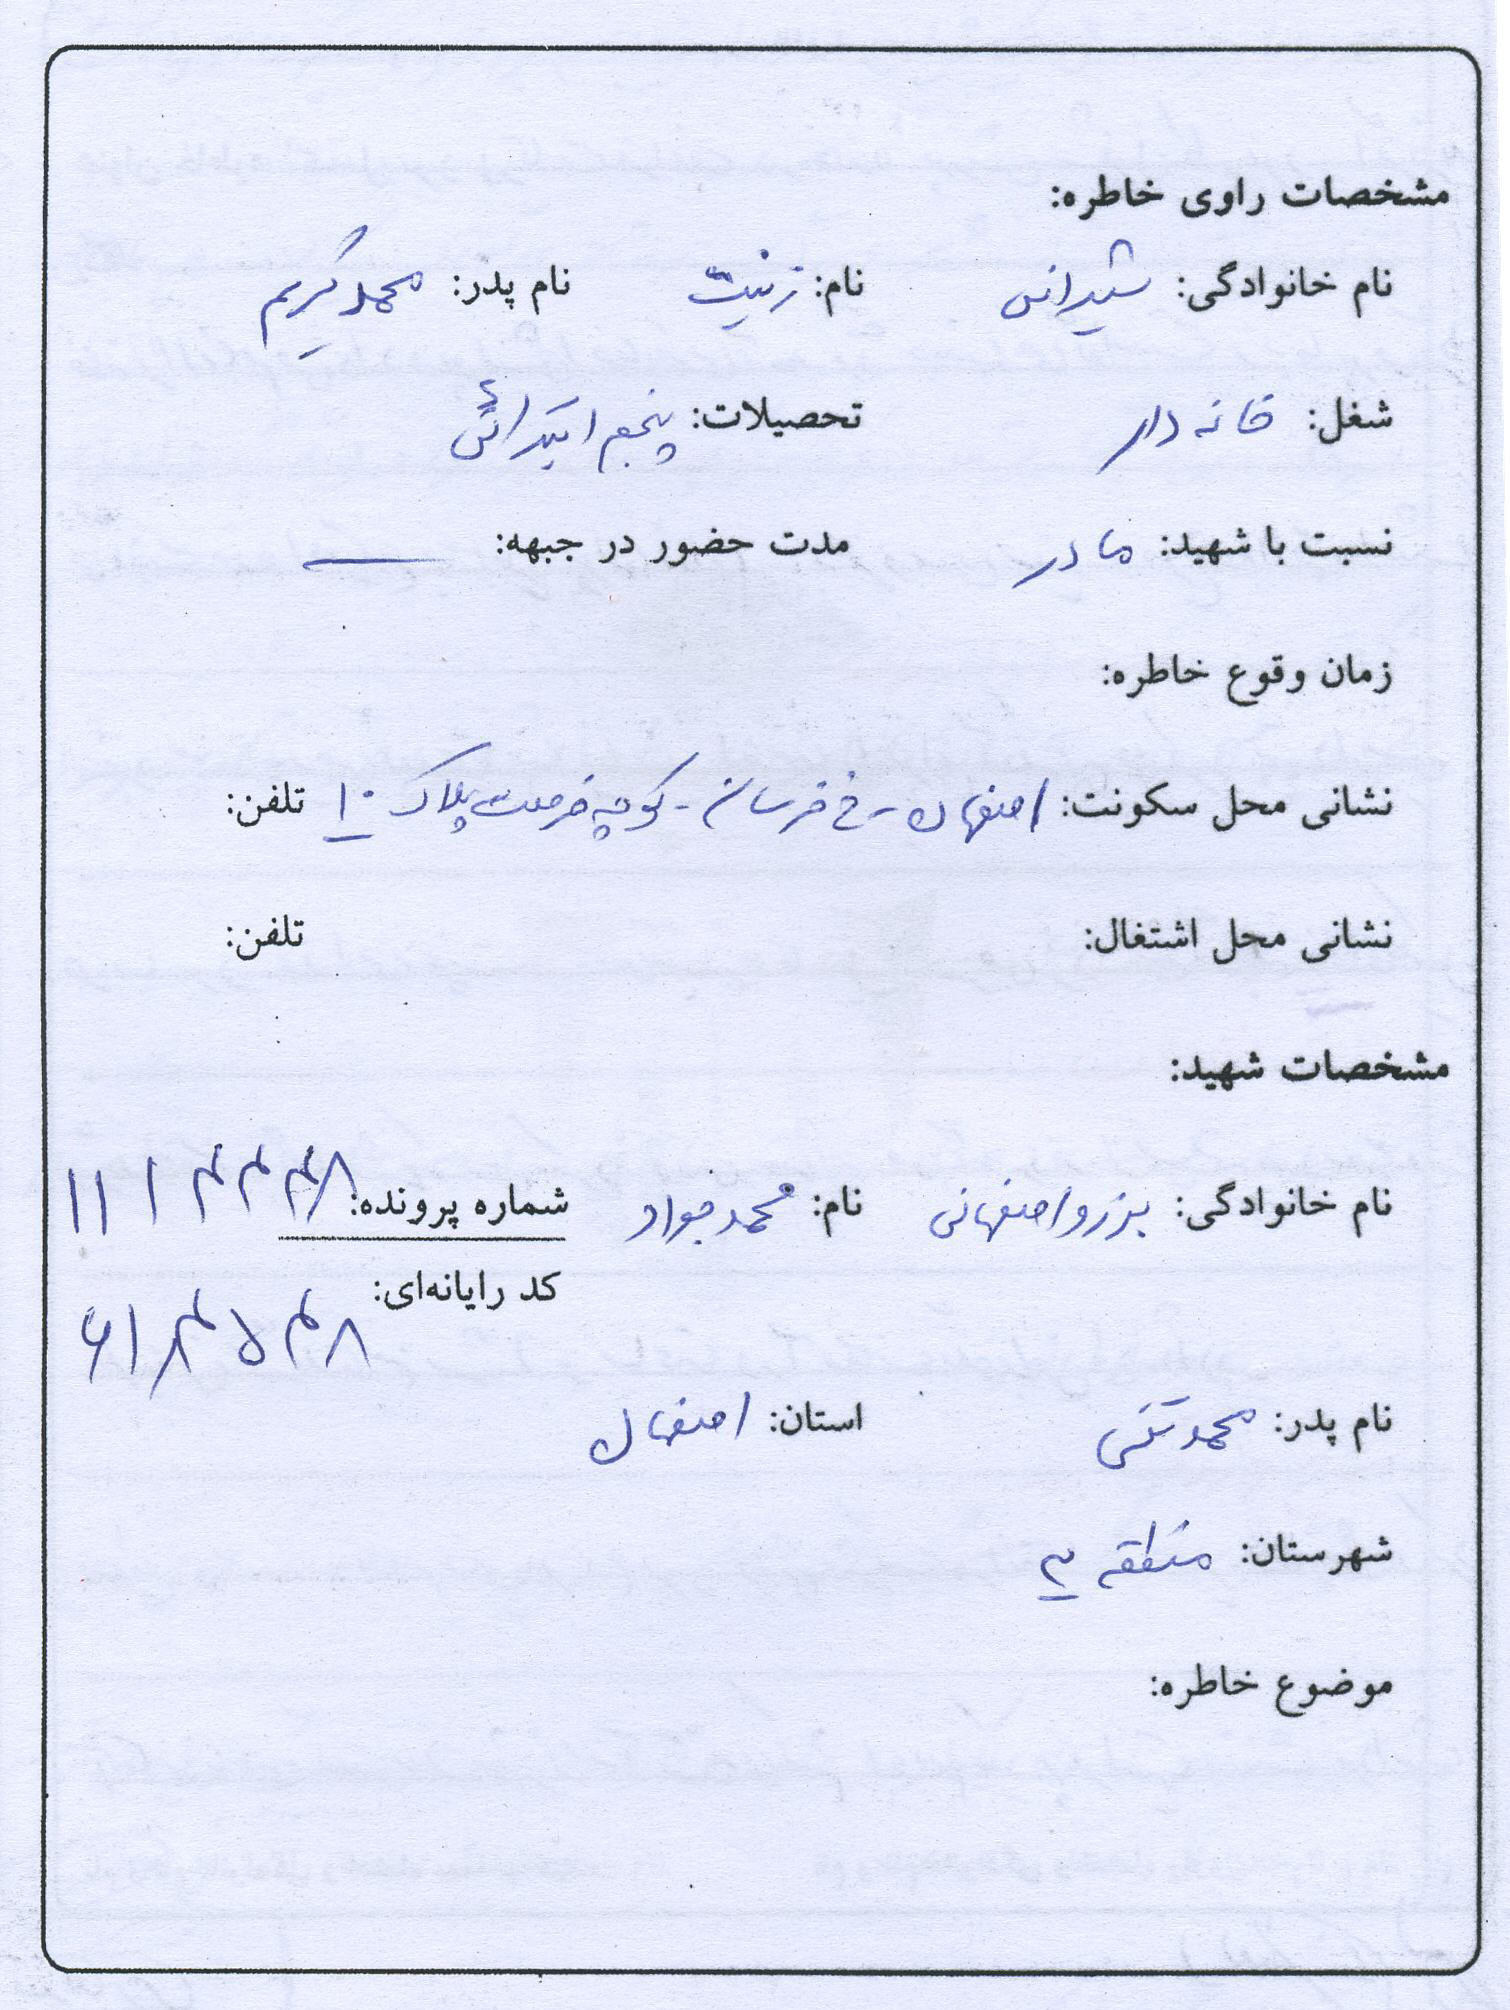 مشخصات راوی خاطره:
نام خانوادگی: شیرانی نام: زینت نام پدر: محمد کریم
شغل: خانه دار تحصیلات: پنجم ابتدائی
نسبت با شهید: مادر مدت حضور در جبهه: ـــ
زمان وقوع خاطره:
نشانی محل سکونت: اصفهان - خ خرسان - کوچه فرصت پلاک ۱۰ تلفن:
نشانی محل اشتغال: تلفن:
مشخصات شهید:
نام خانوادگی: برزواصفهانی نام: محمدجواد شماره پرونده:
کد رایانه‌ای:
نام پدر: محمدتقی استان: اصفهان
شهرستان: منطقه ۲
موضوع خاطره: